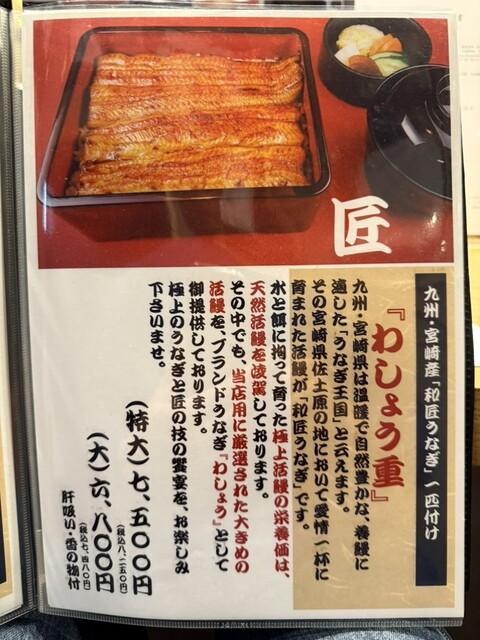 匠
九州・宮崎産「和匠うなぎ」一匹付け
『わしょう重』
九州・宮崎県は温暖で自然豊かな、養鰻に
適した「うなぎ王国」と云えます。
その宮崎県佐土原の地において愛情一杯に
育まれた活鰻が「和匠うなぎ」です。
水と餌に拘って育った極上活鰻の栄養価は、
天然活鰻を凌駕しております。
その中でも、当店用に厳選された大きめの
活鰻を、ブランドうなぎ『わしょう』として
御提供しております。
極上のうなぎと匠の技の饗宴を、お楽しみ
下さいませ。
（特大）七、五〇〇円
（税込八、二五〇円）
（大）六、八〇〇円
（税込七、四八〇円）
肝吸い・香の物付